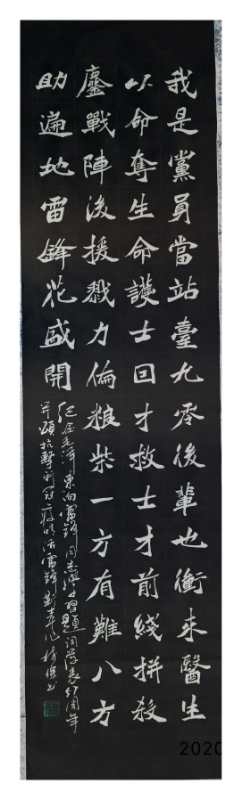 我是黨員當站臺九零後輩也衝来醫生
以命奪生命護士回才救士才前綫拼殺
鏖戰陣後援戮力倫粮柴一方有難八方
助遍地雷鋒花盛開
纪念毛澤東向雷鋒同志學習題词發表57周年
并頌抗擊新冠疫情活雷鋒
2020